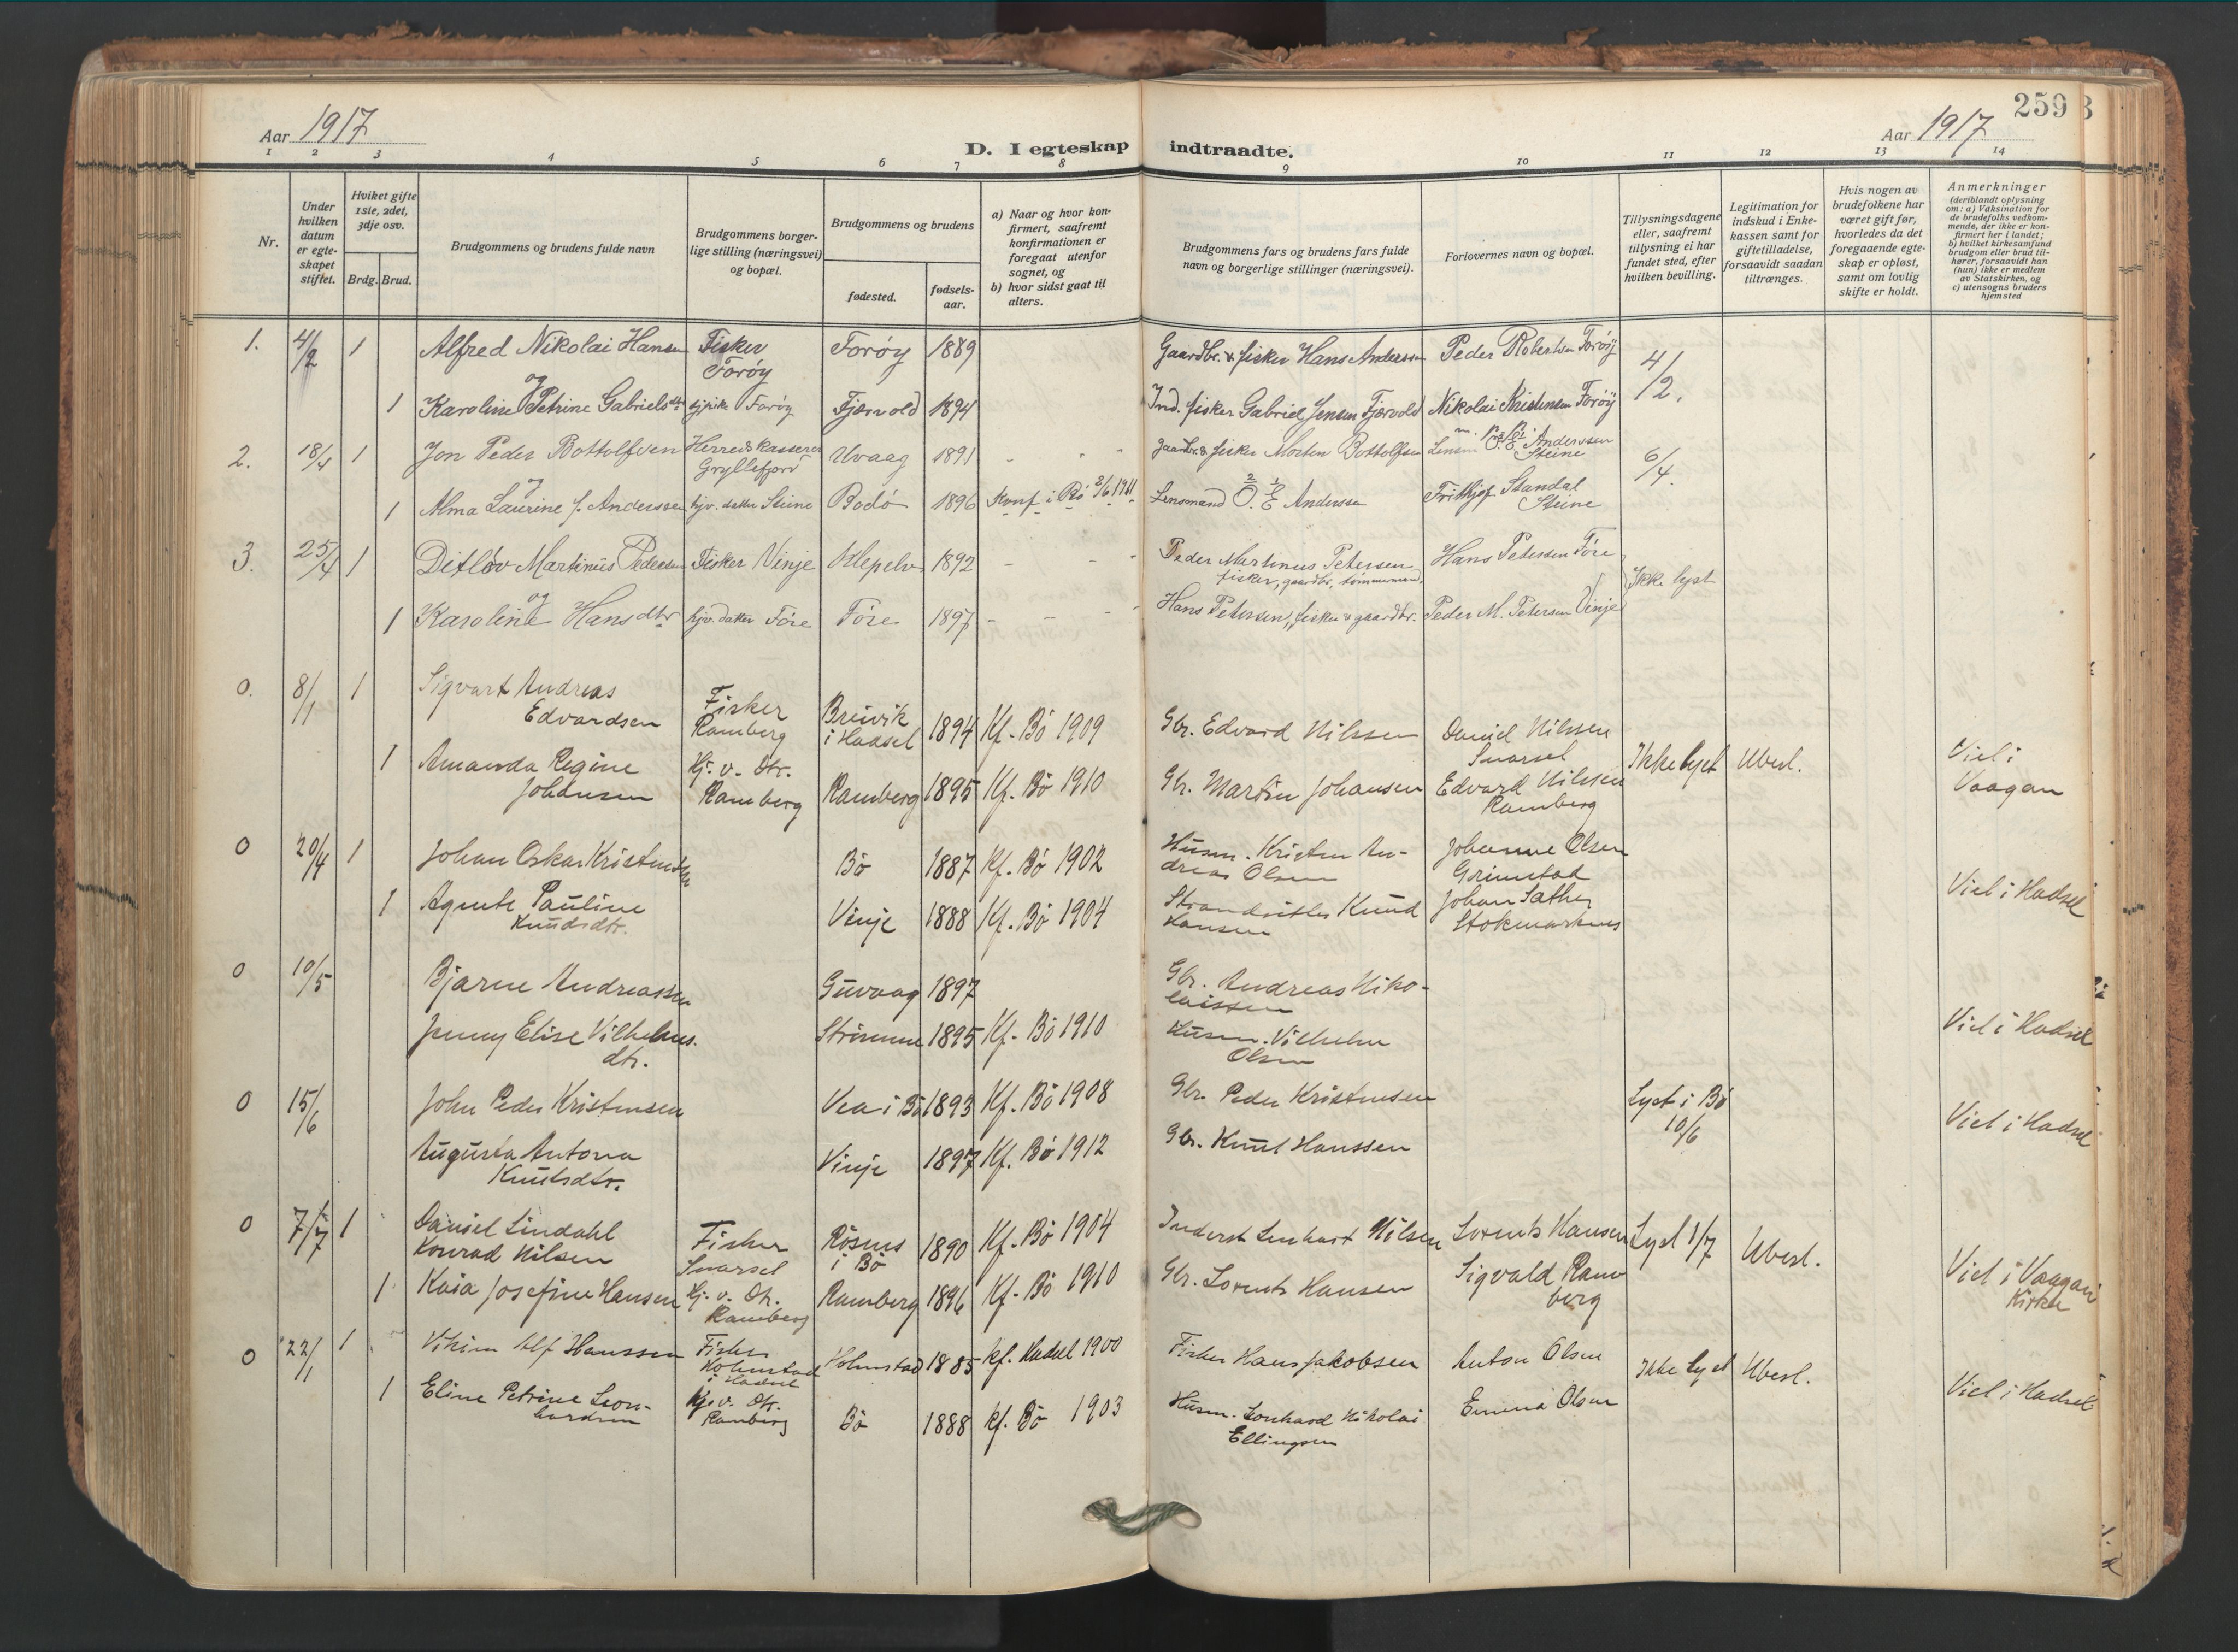 Aar 1917
D. I egteskap indtraadte.
Aar 1917
259
1 2 3 4 5 6 7 8 9 10 11 12 13 14
Nr.
Under hvilken datum er egte-skapet stiftet.
Hviket gifte 1ste, 2det, 3dje osv.
Brdg. Brud.
Brudgommens og brudens fulde navn
Brudgommens borger-lige stilling (næringsvei) og bopæl.
Brudgommens og brudens
fødested.
fødsels-aar.
a) Naar og hvor kon-firmert, saafremt konfirmationen er foregaat utenfor sognet, og
b) hvor sidst gaat til alters.
Brudgommens fars og brudens fars fulde navn og borgerlige stillinger (næringsvei).
Forlovernes navn og bopæl.
Tillysningsdagene eller, saafremt tillysning ei har fundet sted, efter hvilken bevilling.
Legitimation for indskud i Enke-kassen samt for giftetilladelse, forsaavidt saadan tiltrænges.
Hvis nogen av brudefolkene har været gift før, hvorledes da det foregaaende egte-skap er opløst, samt om lovlig skifte er holdt.
Anmerkninger (deriblandt oplysning om: a) Vaksination for de brudefolks vedkom-mende, der ikke er kon-firmert her i landet; b) hvilket kirkesamfund brudgom eller brud til-hører, forsaavidt han (hun) ikke er medlem av Statskirken, og c) utensogns bruders hjemsted
1. 4/2 1 Alfred Nikolai Hansen Fisker Forøy Forøy 1889 Gaardbr. & fisker Hans Anderssen Peder Robertsen Forøy 4/2.
og
1 Karoline Petrine Gabrielsdtr tj.pike Forøy Fjærvold 1894 Ind. fisker Gabriel Jensen Fjærvold Nikolai Kristensen Forøy
2. 18/4 1 Jon Peder Bottolfsen Herredskasserer Gryllefjord Uvaag 1891 Gaardbr. & fisker Morten Bottolfsen Lensm. O. E. Anderssen Steine 6/4.
og
1 Alma Laurine f. Anderssen hjv. datter Steine Bodø 1896 Konf. i Bø 2/6 1911. Lensmand O. E. Anderssen Frithjof Standal Steine
3. 25/4 1 Ditløv Martinus Pedersen Fisker Vinje 1892 Peder Martinus Petersen fisker, gaardbr., tømmermand Hans Petersen Føre Ikke lyst
og
1 Karoline Hansdtr hjv. datter Føre Føre 1897 Hans Petersen, fisker & gaardbr. Peder M. Petersen Vinje
0. 8/1 1 Sigvart Andreas Edvardsen Fisker Ramberg Breivik i Hadsel 1894 Kf. Bø 1909 Gbr. Edvard Nilssen Daniel Nilssen Svarsel Ikke lyst Uberl. Viel i Vaagan
1 Amanda Regine Johansen Hj. v. Dtr. Ramberg Ramberg 1895 Kf. Bø 1910 Gbr. Martin Johansen Edvard Nilssen Ramberg
0 20/4 1 Johan Oskar Kristensen Bø 1887 Kf. Bø 1902 Husm. Kristen An-dreas Olsen Johanne Olsen Grimstad Viel i Hadsel
1 Agnete Pauline Knudsdtr. Vinje 1888 Kf. Bø 1904 Strandsitter Knud Hansen Johan Sæther Stokmarknes
0 10/5 Bjarne Andreassen Guvaag 1897 Gbr. Andreas Niko-laissen Viel i Hadsel
Jenny Elise Vilhelms. dtr. Strømme 1895 Kf. Bø 1910 Husm. Vilhelm Olsen
0 15/6 John Peder Kristensen Vea i Bø 1893 Kf. Bø 1908 Gbr. Peder Kristensen Lyst i Bø 10/6 Viel i Hadsel
Augusta Antona Knutsdtr. Vinje 1897 Kf. Bø 1912 Gbr. Knut Hanssen
0 7/7 1 Daniel Lindahl Konrad Nilsen Fisker Svarsel Røsnes i Bø 1890 Kf. Bø 1904 Inderst Lenhart Nilsen Lorents Hansen Lyst 1/7 Uberl. Viel i Vaagan Kirke
1 Kaia Josefine Hansen Hj. v. Dtr. Ramberg Ramberg 1896 Kf. Bø 1910 Gbr. Lorents Hansen Sigvald Ramberg
0 22/1 1 Alf Hanssen Fisker Holmstad i Hadsel Holmstad 1885 kf. Hadsel 1900 Fisker Hans Jakobsen Anton Olsen Ikke lyst Uberl. Viel i Hadsel
1 Eline Petrine Leon-hardsen Hj. v. Dtr. Ramberg Bø 1888 kf. Bø 1903 Husm. Leonhard Nikolai Ellingsen Emma Olsen